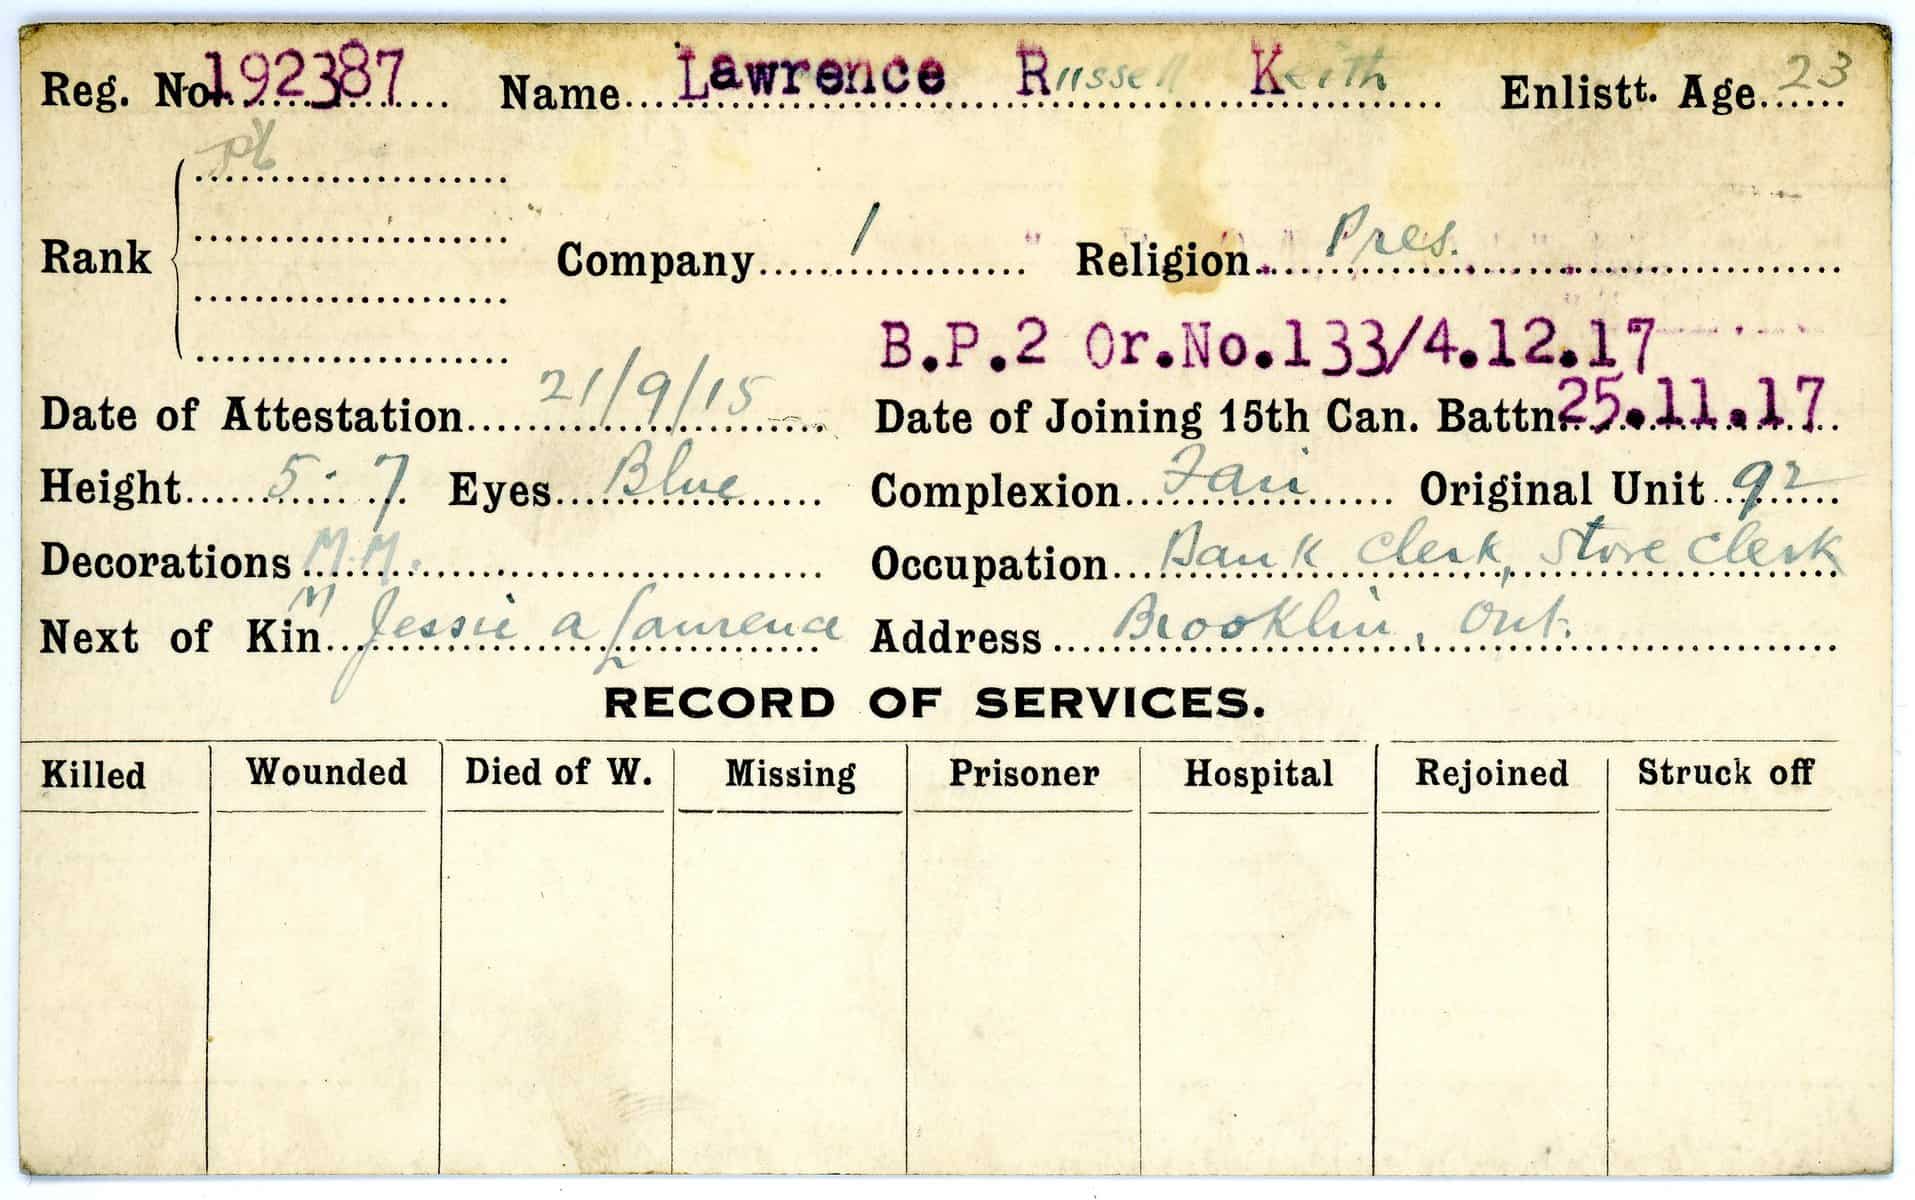 Reg. No. 192387 Name Lawrence Russell Keith Enlistt. Age 23
Rank Company 1 Religion Pres.
B.P.2 Or.No.133/4.12.17
Date of Attestation 21/9/15 Date of Joining 15th Can. Battn. 25.11.17
Height 5 . 7 Eyes Blue Complexion Fair Original Unit 92
Decorations M.M. Occupation Bank Clerk, Store Clerk
Next of Kin M Jessie A Lawrence Address Brooklin, Ont.
RECORD OF SERVICES.
Killed Wounded Died of W. Missing Prisoner Hospital Rejoined Struck off